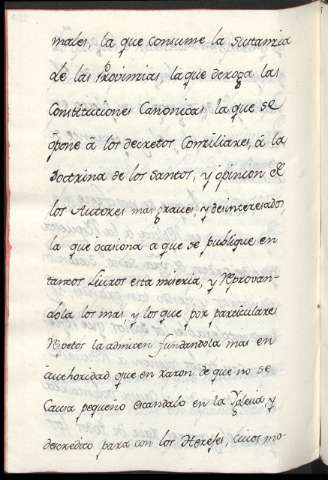 males, la que consume la sustanzia
de las Provimzias, la que deroga las
Constituciones Canonicas, la que se
opone à los decretos Comziliares, à la
Doctrina de los Santos, y opinion de
los Autores mas graves, y desinteresados,
la que ocasiona a que se publique en
tantos Livros esta miseria, y Reprovan-
dola los mas y los que por particulares
Respetos la admiten fundandola mas en
authoridad que en raxon de que no se
Causa pequeño escandalo en la Yglesia y
descredito para con los Herejes, cuios mo-